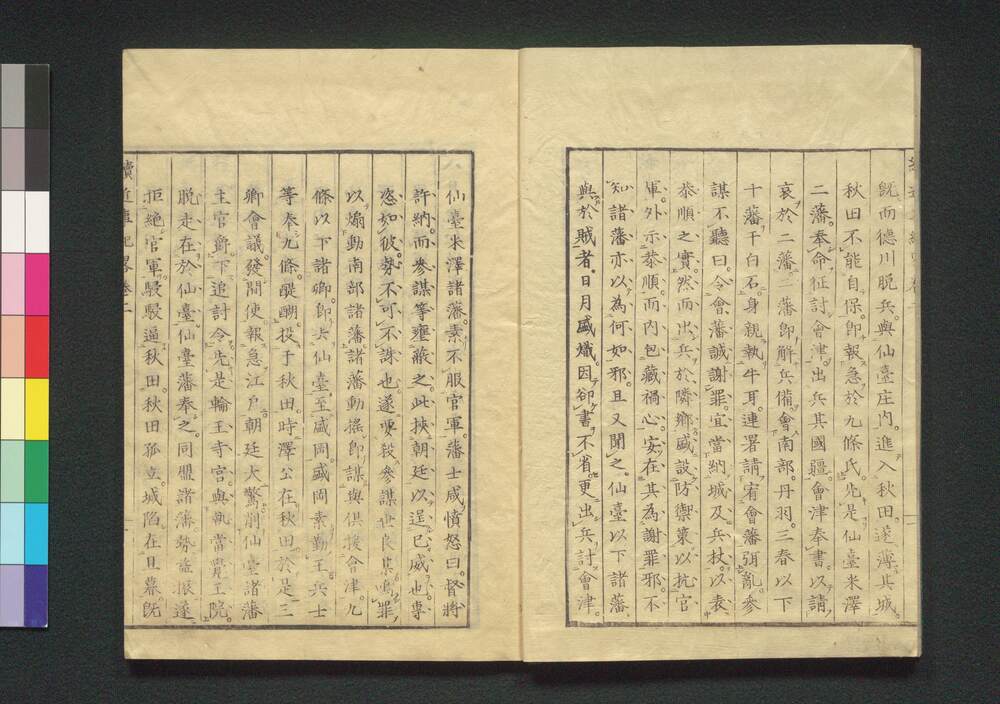 既而德川脱兵。與仙臺庄内。進入秋田。遂薄其城
秋田不能自保。卽報急於九條氏。先是仙臺米澤
二藩。奉命征討會津。出兵其國疆。會津奉書。以請
哀於二藩。二藩卽解兵備。會南部。丹羽。三春以下
十藩。于白石。身親執牛耳。連署請宥會藩弭亂。參
謀不聽曰。令會藩誠謝罪。宜當納城及兵杖。以表
恭順之實。然而出兵於隣鄉。盛設防禦策。以抗官
軍。外示恭順。而内包藏禍心。安在其為謝罪邪。不
知諸藩亦以為何如邪。且又聞之。仙臺以下諸藩。
與於賊者。日月盛熾。因卻書不省。更出兵討會津。
仙臺米澤諸藩。素不服官軍。藩士咸憤怒曰。督將
許納。而參謀等壅蔽之。此挾朝廷以逞己威也。專
恣如彼。勢不可不誅也。遂更殺參謀世良某。鳴罪
以煽動南部諸藩。諸藩動搖。卽謀與俱援會津。九
條以下諸卿。卽去仙臺。至盛岡。盛岡素勤王。兵士
等奉九條。醍醐。投于秋田。時澤公在秋田。於是三
卿會議。發間使報急江戶。朝廷大驚。削仙臺諸藩
主官爵。下追討令。先是輪王寺宮。與執當覺王院。
脱走在於仙臺。仙臺藩奉之。同盟諸藩勢益振。遂
拒絶官軍。駸駸逼秋田。秋田孤立。城陷在旦暮。既
續近世紀畧卷二